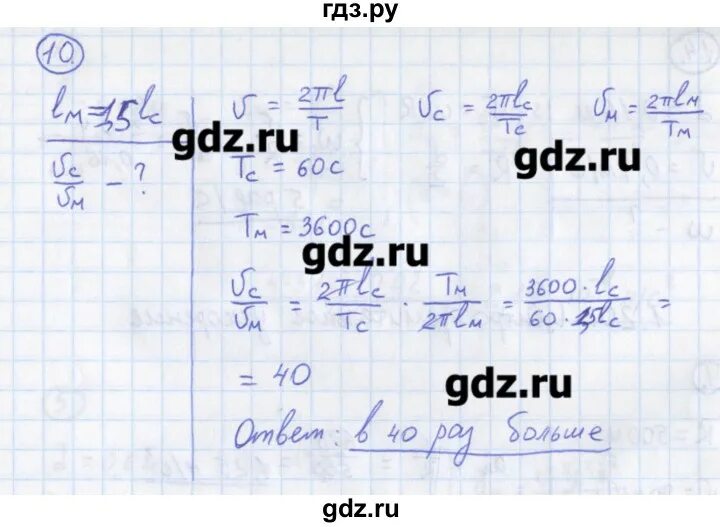 гдз.ру
10.
lм = 1,5 lc
υc/υм - ?
υ = 2πl/T υc = 2πlc/Tc υм = 2πlм/Tм
gdz.ru
gdz.ru
Tc = 60c
Tм = 3600c
gdz.ru
υc/υм = 2πlc/Tc · Tм/2πlм = 3600·lc/60·1,5lc =
= 40
gdz.ru
Ответ: в 40 раз больше
gdz.ru